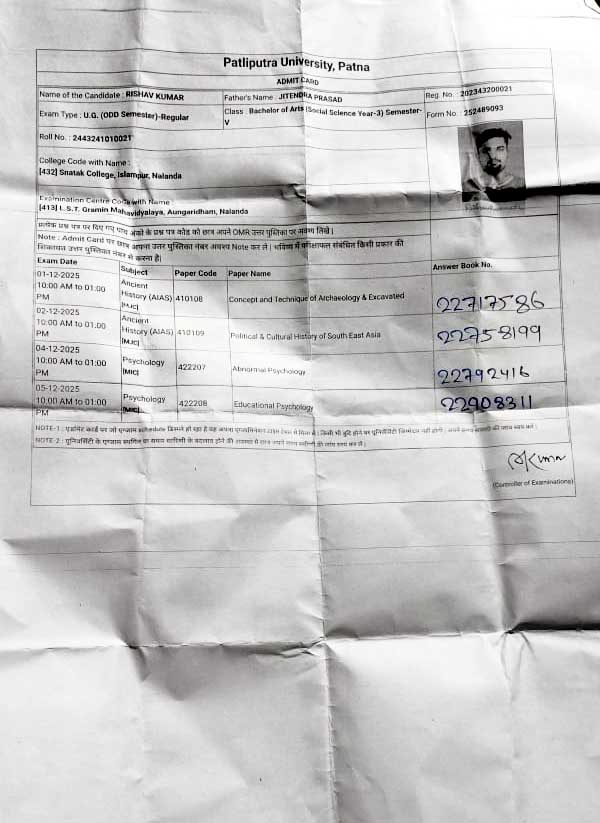 Patliputra University, Patna
ADMIT CARD
Name of the Candidate : RISHAV KUMAR
Father's Name : JITENDRA PRASAD
Reg. No. : 202343200021
Exam Type : U.G. (ODD Semester)-Regular
Class : Bachelor of Arts (Social Science Year-3) Semester-V
Form No : 252489093
Roll No. : 2443241010021
College Code with Name :
[432] Snatak College, Islampur, Nalanda
Examination Centre Code with Name :
[413] L.S.T. Gramin Mahavidyalaya, Aungaridham, Nalanda
प्रत्येक प्रश्न पत्र पर दिए गए पांच अंको के प्रश्न पत्र कोड को छात्र अपने OMR उत्तर पुस्तिका पर अवश्य लिखे।
Note : Admit Card पर छात्र अपना उत्तर पुस्तिका नंबर अवश्य Note कर ले। भविष्य में परीक्षाफल संबंधित किसी प्रकार की
शिकायत उत्तर पुस्तिका नंबर से करना है।
Exam Date Subject Paper Code Paper Name Answer Book No.
01-12-2025 10:00 AM to 01:00 PM Ancient History (AIAS) [MJC] 410108 Concept and Technique of Archaeology & Excavated 22717586
02-12-2025 10:00 AM to 01:00 PM Ancient History (AIAS) [MJC] 410109 Political & Cultural History of South East Asia 22758199
04-12-2025 10:00 AM to 01:00 PM Psychology [MIC] 422207 Abnormal Psychology 22792416
05-12-2025 10:00 AM to 01:00 PM Psychology [MIC] 422208 Educational Psychology 22908311
NOTE-1 : एडमिट कार्ड पर जो एग्जाम schedule
NOTE-2 : यूनिवर्सिटी के एग्जाम
(Controller of Examinations)